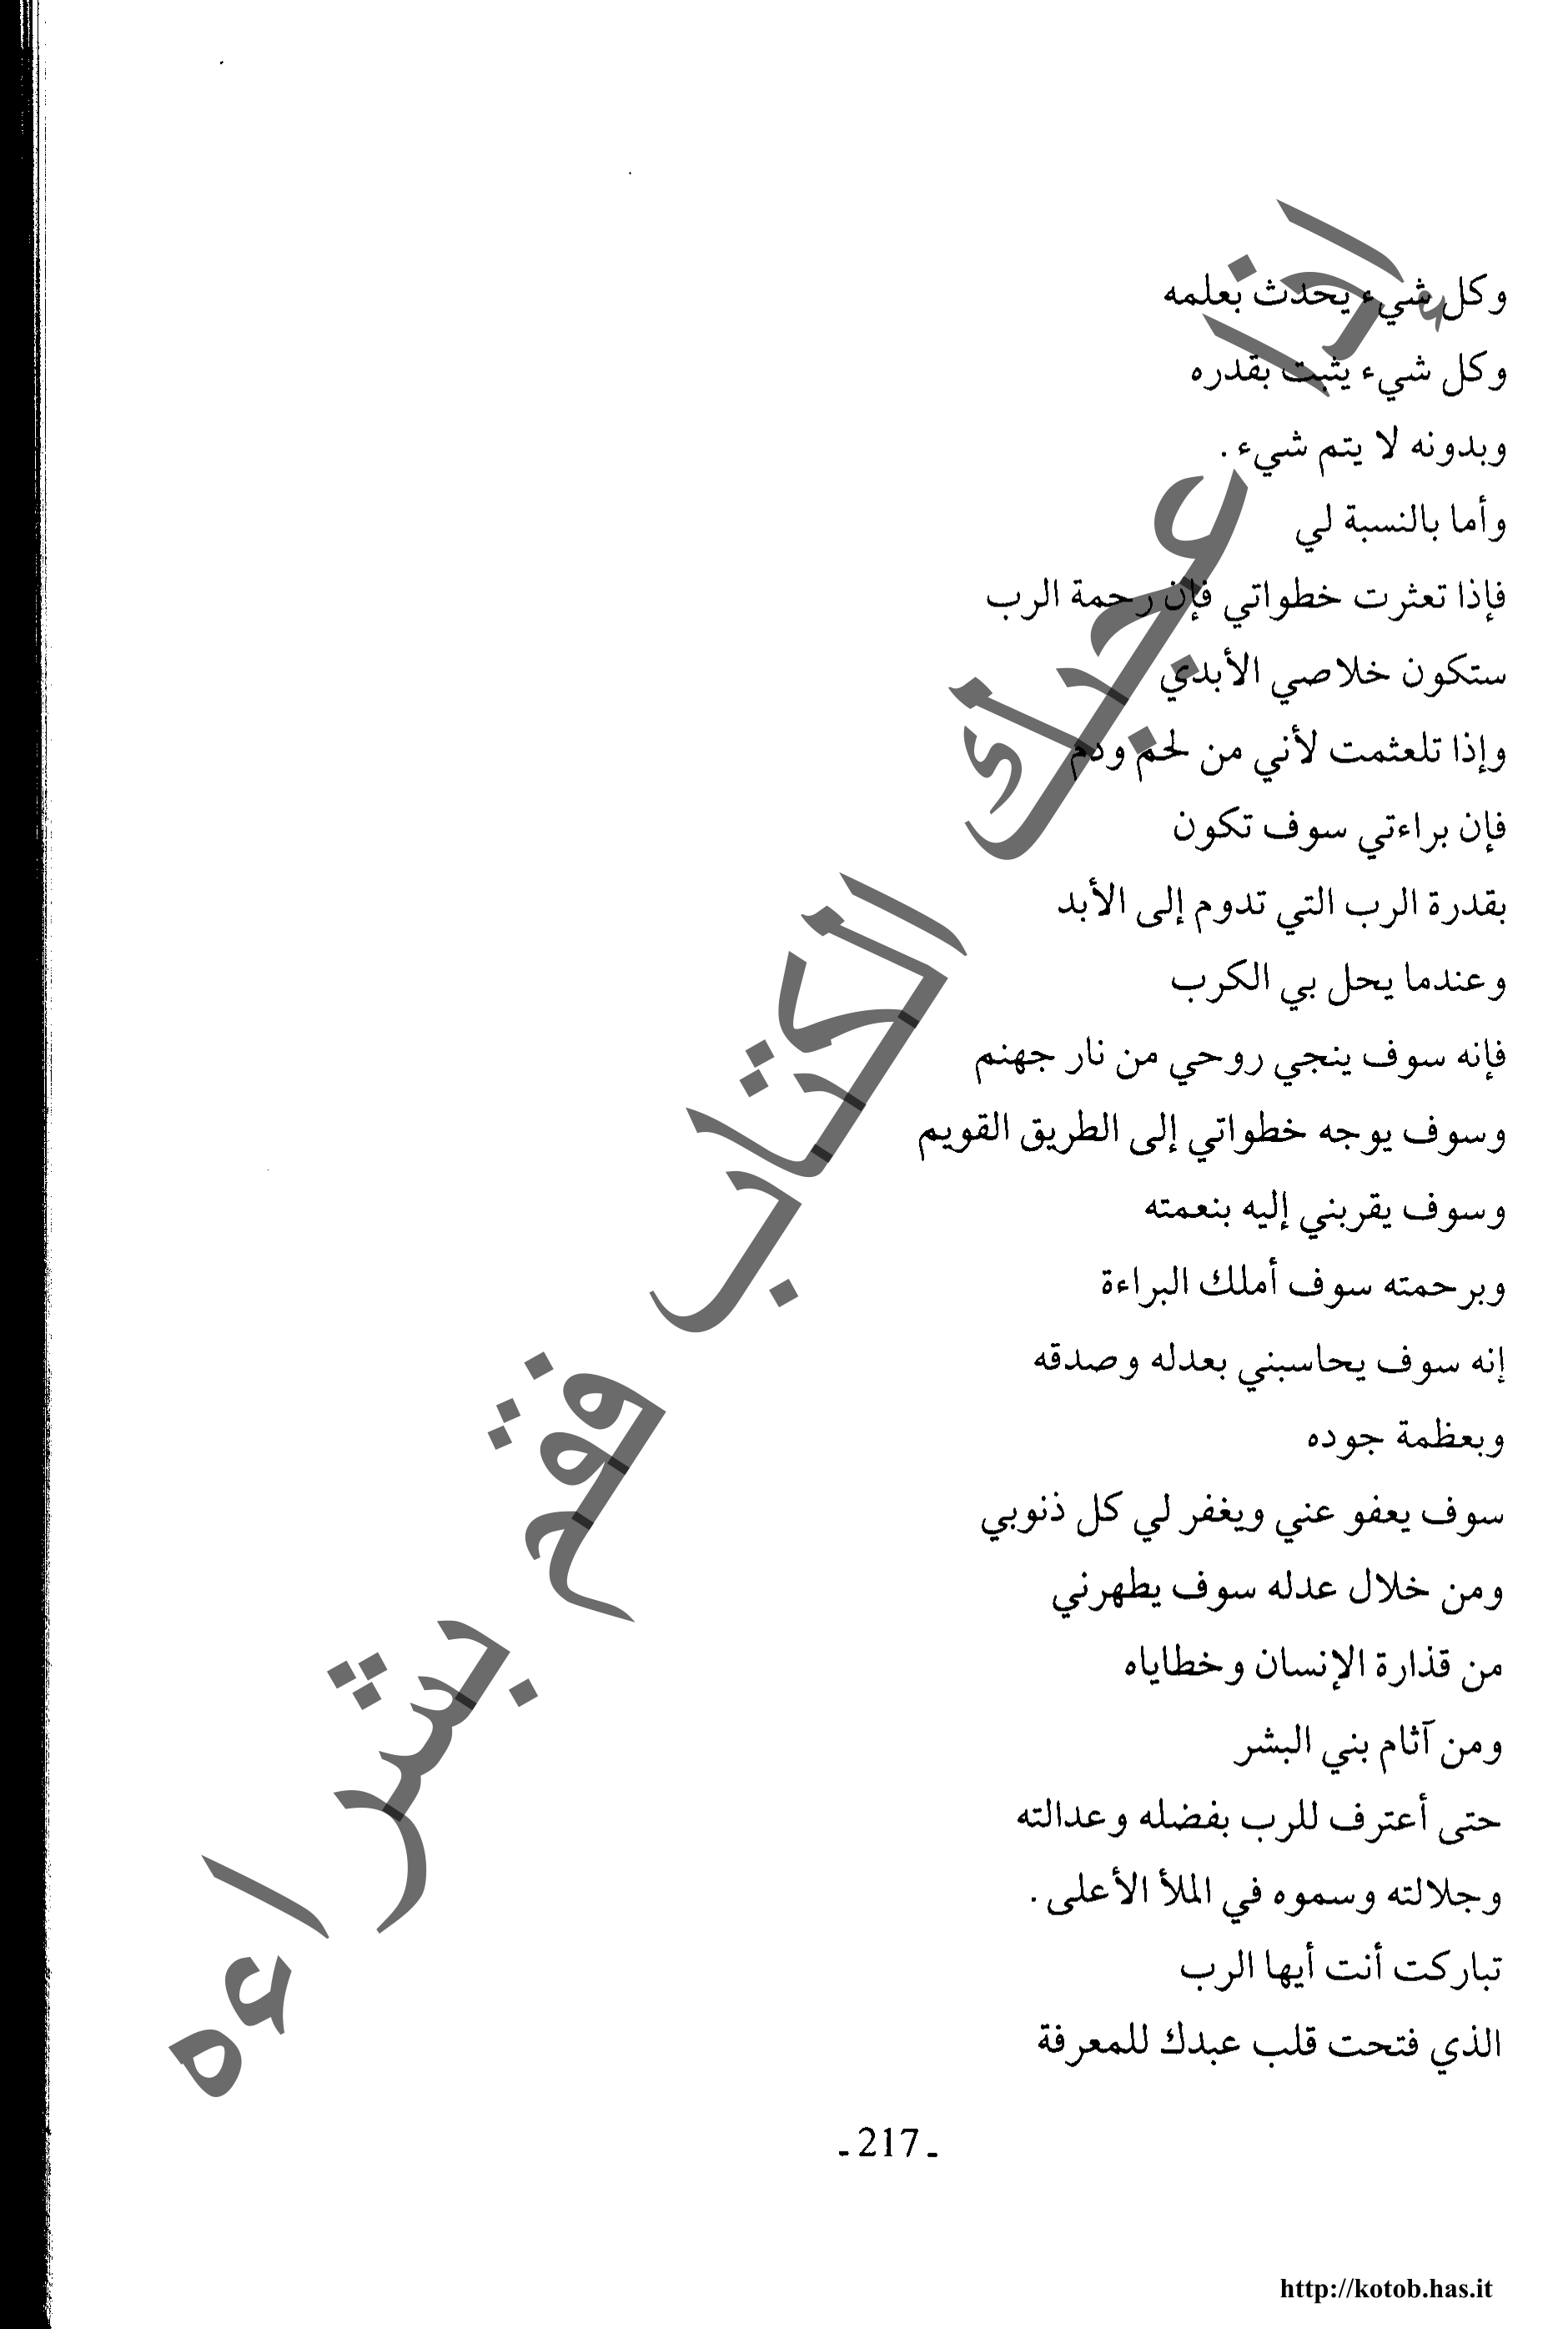 وكل شيء يحدث بعلمه
وكل شيء يثبت بقدره
وبدونه لا يتم شيء .
وأما بالنسبة لي
فإذا تعثرت خطواتي فإن رحمة الرب
ستكون خلاصي الأبدي
وإذا تلعثمت لأني من لحم ودم
فإن براءتي سوف تكون
بقدرة الرب التي تدوم إلى الأبد
وعندما يحل بي الكرب
فإنه سوف ينجي روحي من نار جهنم
وسوف يوجه خطواتي إلى الطريق القويم
وسوف يقربني إليه بنعمته
وبرحمته سوف أملك البراءة
إنه سوف يحاسبني بعدله وصدقه
وبعظمة جوده
سوف يعفو عني ويغفر لي كل ذنوبي
ومن خلال عدله سوف يطهرني
من قذارة الإنسان وخطاياه
ومن آثام بني البشر
حتى أعترف للرب بفضله وعدالته
وجلالته وسموه في الملأ الأعلى .
تباركت أنت أيها الرب
الذي فتحت قلب عبدك للمعرفة
- 217 -
http://kotob.has.it
إذا عجبك الكتاب فقم بشراءه